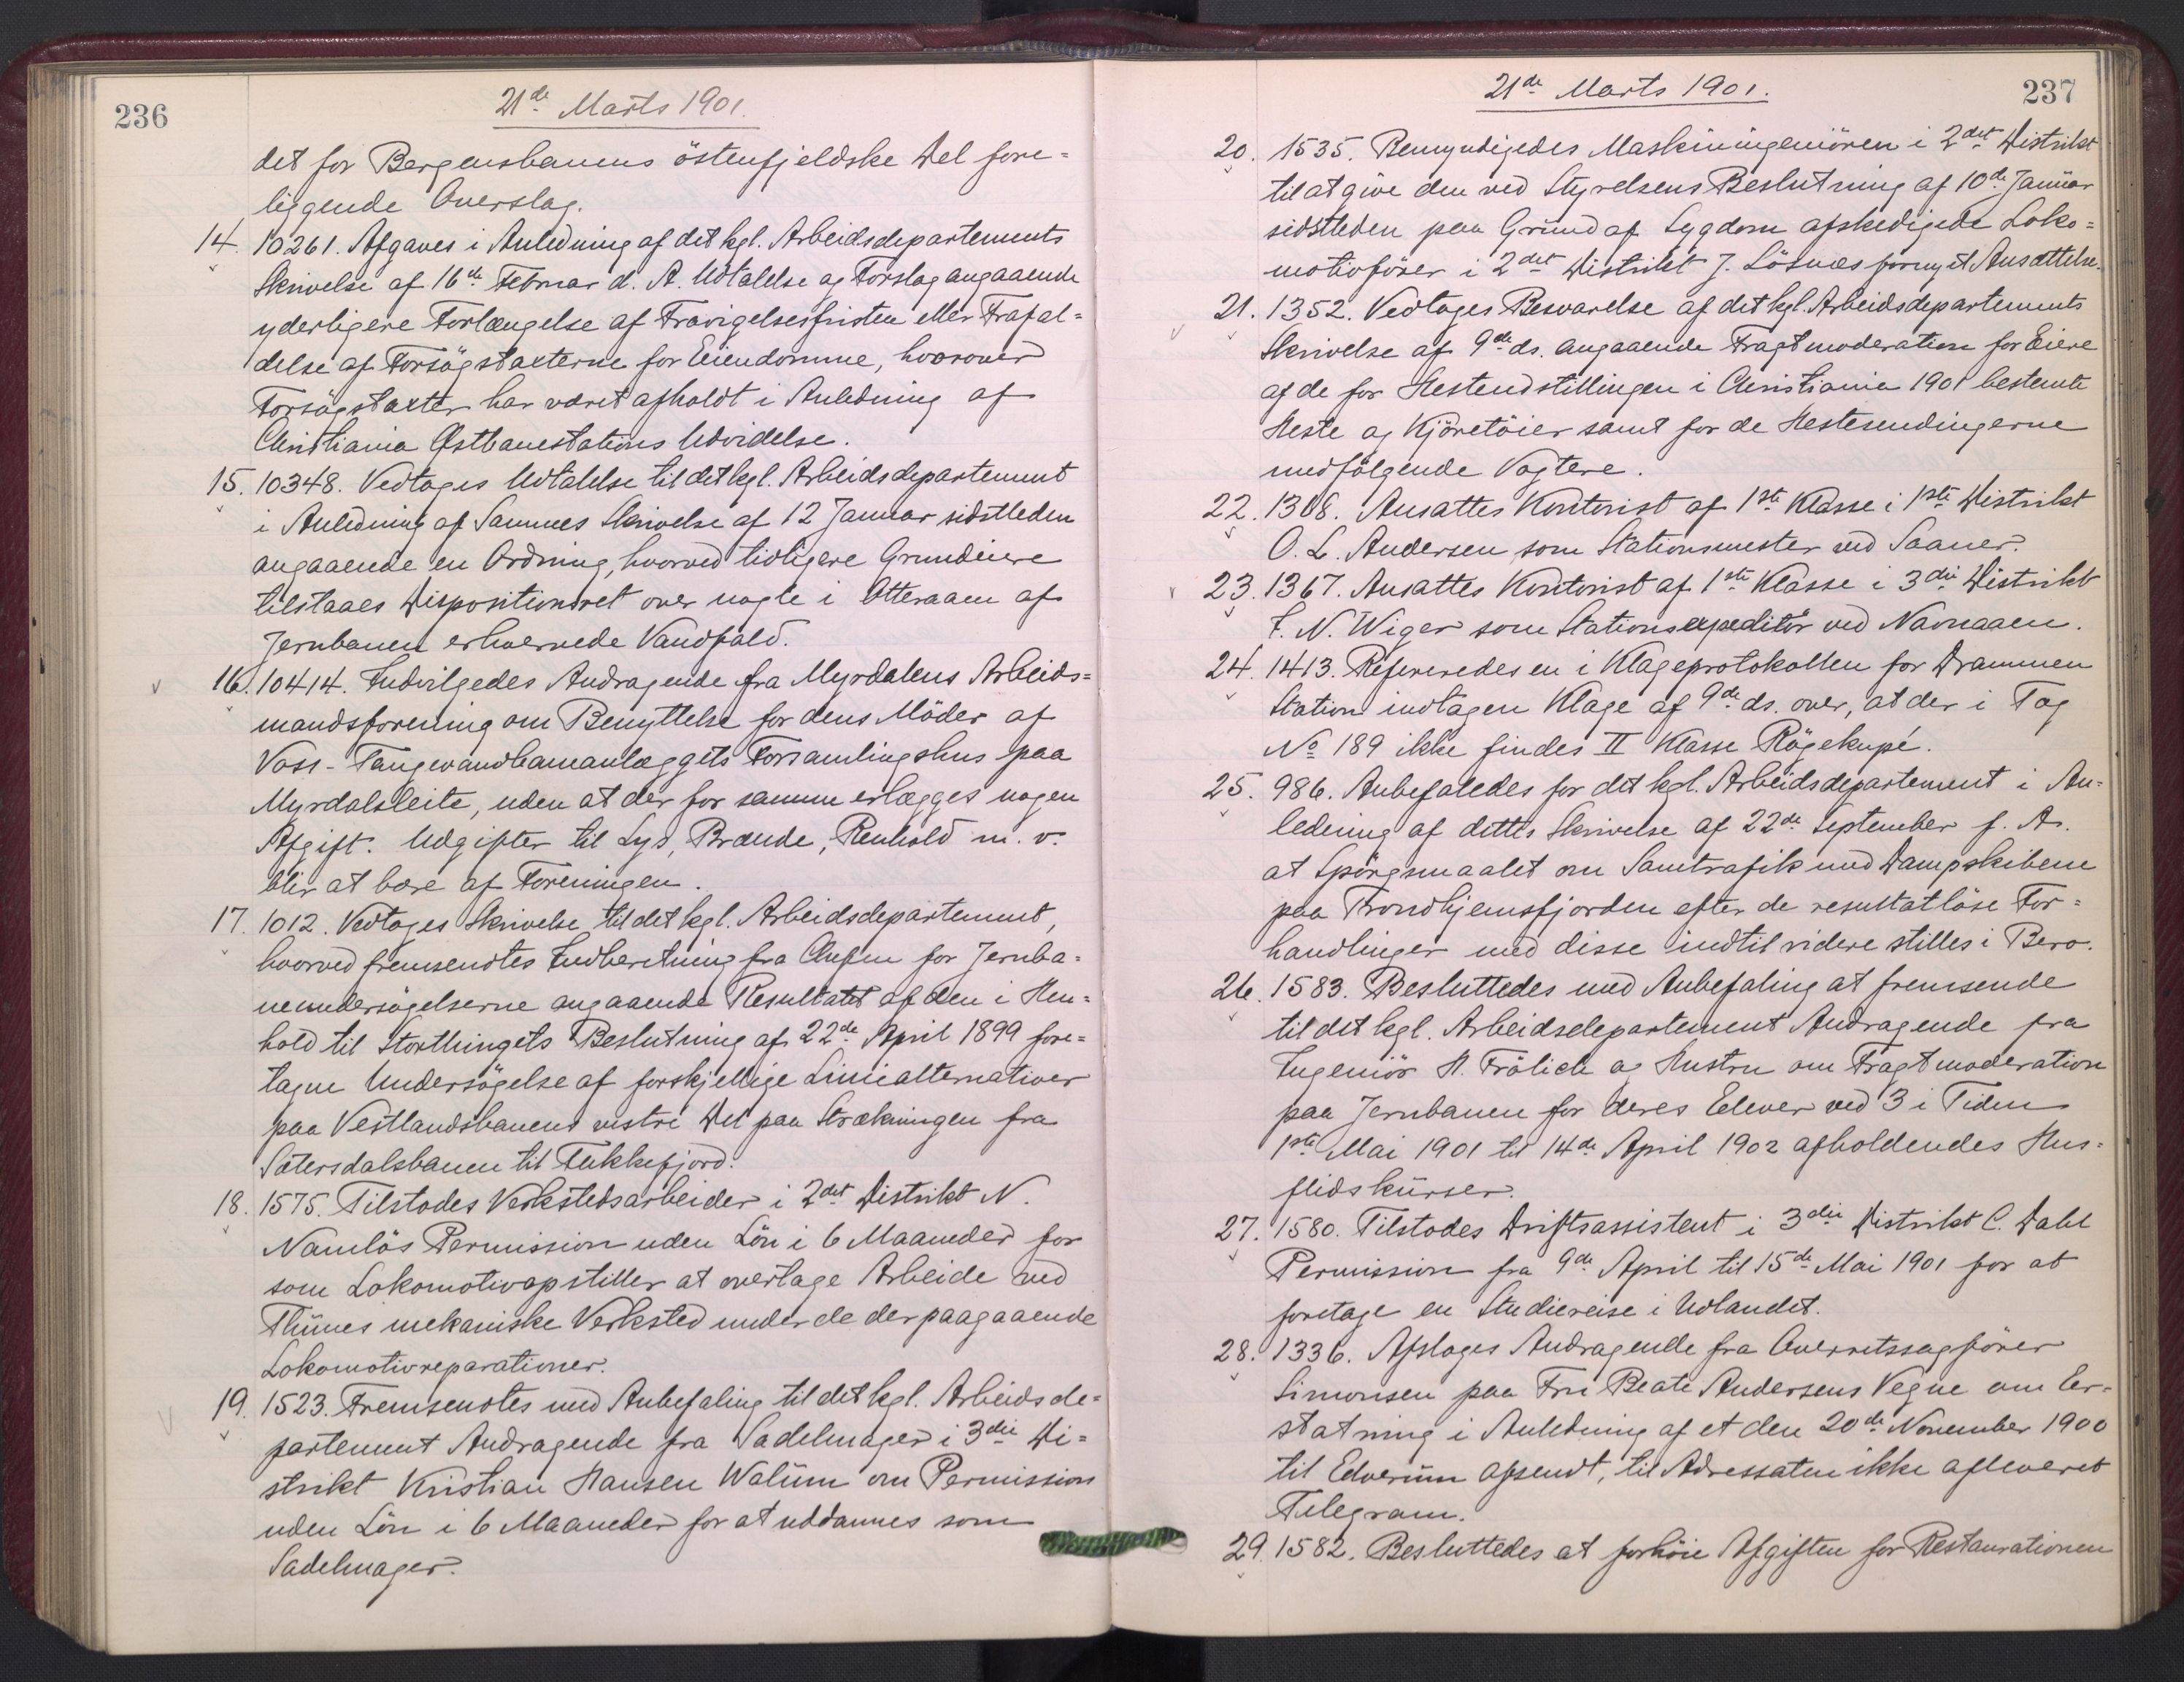 236
21de Marts 1901.
det for Bergensbanens östenfjeldske Del fore=
liggende Overslag.
14. 10261. Afgaves i Anledning af det kgl. Arbeidsdepartements
Skrivelse af 16de Februar d. A. Udtalelse og Forslag angaaende
yderligere Forlængelse af Fravigelsesfristen eller Frafal=
delse af Forsögstaxterne for Eiendomme, hvorover
Forsögstaxter har været afholdt i Anledning af
Christiania Østbanestations Udvidelse.
15. 10348. Vedtoges Udtalelse til det kgl. Arbeidsdepartement
i Anledning af Sammes Skrivelse af 12 Januar sidstleden
angaaende en Ordning, hvorved tidligere Grundeiere
tilstaaes Dispositionsret over nogle i Otteraaen af
Jernbanen erhvervede Vandfald.
16. 10414. Indvilgedes Andragende fra Myrdalens Arbeids=
mandsforening om Benyttelse for dens Möder af
Voss-Tangevandbaneanlæggets Forsamlingshus paa
Myrdalsleite, uden at der for samme erlægges nogen
Afgift. Udgifter til Lys, Brænde, Renhold m. v.
blir at bære af Foreningen.
17. 1012. Vedtoges Skrivelse til det kgl. Arbeidsdepartement,
hvorved fremsendtes Indberetning fra Chefen for Jernba=
neundersögelserne angaaende Resultatet af den i Hen=
hold til Storthingets Beslutning af 22de April 1899 fore=
tagne Undersögelse af forskjellige Liniealternativer
paa Vestlandsbanens vestre Del paa Strækningen fra
Sætersdalsbanen til Fækkefjord.
18. 1575. Tilstodes Verkstedsarbeider i 2det Distrikt N.
Namlös Permission uden Lön i 6 Maaneder for
som Lokomotivopstiller at overtage Arbeide ved
Thünes mekaniske Verksted under de der paagaaende
Lokomotivreparationer.
19. 1523. Fremsendtes med Anbefaling til det kgl. Arbeidsde=
partement Andragende fra Sadelmager i 3die Di=
strikt Kristian Hansen Walüm om Permission
uden Lön i 6 Maaneder for at uddannes som
Sadelmager.
237
21de Marts 1901.
20. 1535. Bemyndigedes Maskiningeniören i 2det Distrikt
til at give den ved Styrelsens Beslutning af 10de Januar
sidstleden paa Grund af Sygdom afskedigede Loko=
motivförer i 2det Distrikt J. Lösnæs fornyet Ansættelse.
21. 1352. Vedtoges Besvarelse af det kgl. Arbeidsdepartements
Skrivelse af 9de ds. angaaende Fragtmoderation for Eiere
af de for Hesteudstillingen i Christiania 1901 bestemte
Heste og Kjöretöier samt for de Hestesendingerne
medfölgende Vogtere.
22. 1308. Ansattes Kontorist af 1ste Klasse i 1ste Distrikt
O. L. Andersen som Stationsmester ved Saaner.
23. 1367. Ansattes Kontorist af 1ste Klasse i 3die Distrikt
F. N. Wiger som Stationsexpeditör ved Navnaaen.
24. 1413. Refereredes en i Klageprotokollen for Drammen
Station indtagen Klage af 9de ds. over, at der i Tog
No 189 ikke findes II Klasse Rögekupé.
25. 986. Anbefaledes for det kgl. Arbeidsdepartement i An=
ledning af dettes Skrivelse af 22de September f. A.
at Spörgsmaalet om Samtrafik med Dampskibene
paa Trondhjemsfjorden efter de resultatlöse For=
handlinger med disse indtil videre stilles i Bero.
26. 1583. Besluttedes med Anbefaling at fremsende
til det kgl. Arbeidsdepartement Andragende fra
Ingeniör H. Frölich og Hustru om Fragtmoderation
paa Jernbanen for deres Elever ved 3 i Tiden
1ste Mai 1901 til 14de April 1902 afholdendes Hus=
flidskurser.
27. 1580. Tilstodes Driftsassistent i 3die Distrikt C. Dahl
Permission fra 9de April til 15de Mai 1901 for at
foretage en Studiereise i Udlandet.
28. 1336. Afsloges Andragende fra Overretssagförer
Simonsen paa Fru Beate Andersens Vegne om Er=
statning i Anledning af et den 20de November 1900
til Elverüm afsendt, til Adressaten ikke afleveret
Telegram.
29. 1582. Besluttedes at forhöie Afgiften for Restaurationen